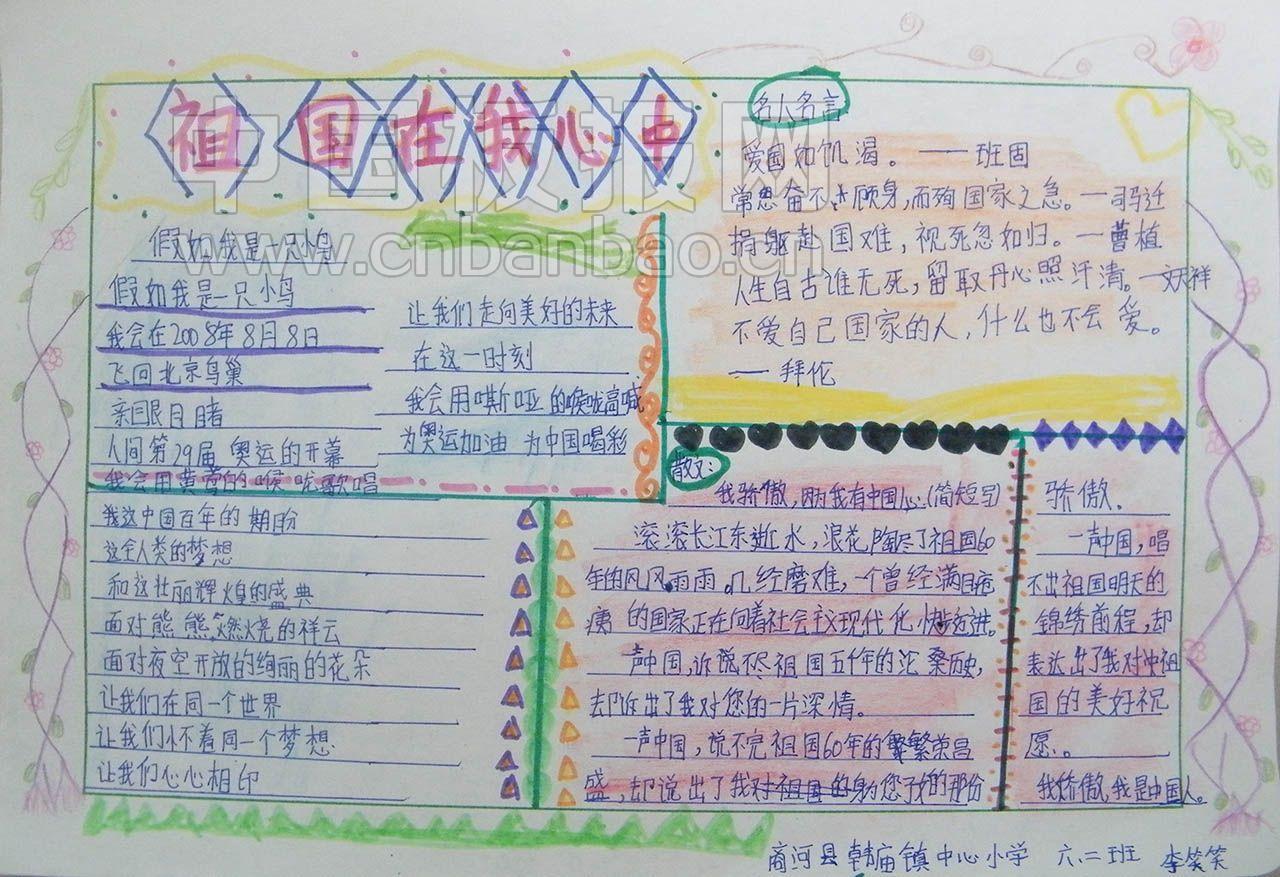 祖国在我心中
中国板报网
www.cnbanbao.cn
假如我是一只小鸟
假如我是一只小鸟
我会在2008年8月8日
飞回北京鸟巢
亲眼目睹
人间第29届 奥运的开幕
我会用黄莺的喉咙歌唱
我这中国百年的期盼
这全人类的梦想
和这壮丽辉煌的盛典
面对熊熊燃烧的祥云
面对夜空开放的绚丽的花朵
让我们在同一个世界
让我们怀着同一个梦想
让我们心心相印
让我们走向美好的未来
在这一时刻
我会用嘶哑的喉咙高喊
为奥运加油 为中国喝彩
名人名言
爱国如饥渴。——班固
常思奋不顾身,而殉国家之急。—司马迁
捐躯赴国难,视死忽如归。—曹植
人生自古谁无死,留取丹心照汗清。—文天祥
不爱自己国家的人,什么也不会爱。
——拜伦
散文:
我骄傲,因为我有中国心(简短写)
滚滚长江东逝水,浪花陶尽了祖国60
年的风风雨雨。几经磨难,一个曾经满目疮
痍的国家正在向着社会主义现代化小快迈进。
一声中国,诉说不尽祖国五千年的沧桑历史,
却诉出了我对您的一片深情。
一声中国,说不完祖国60年的繁繁荣昌
盛,却说出了我对祖国的身为您子女的那份
骄傲.
一声中国,唱
不出祖国明天的
锦绣前程,却
表达出了我对中祖
国的美好祝
愿。
我骄傲,我是中国人。
商河县韩庙镇中心小学 六.二班 李笑笑